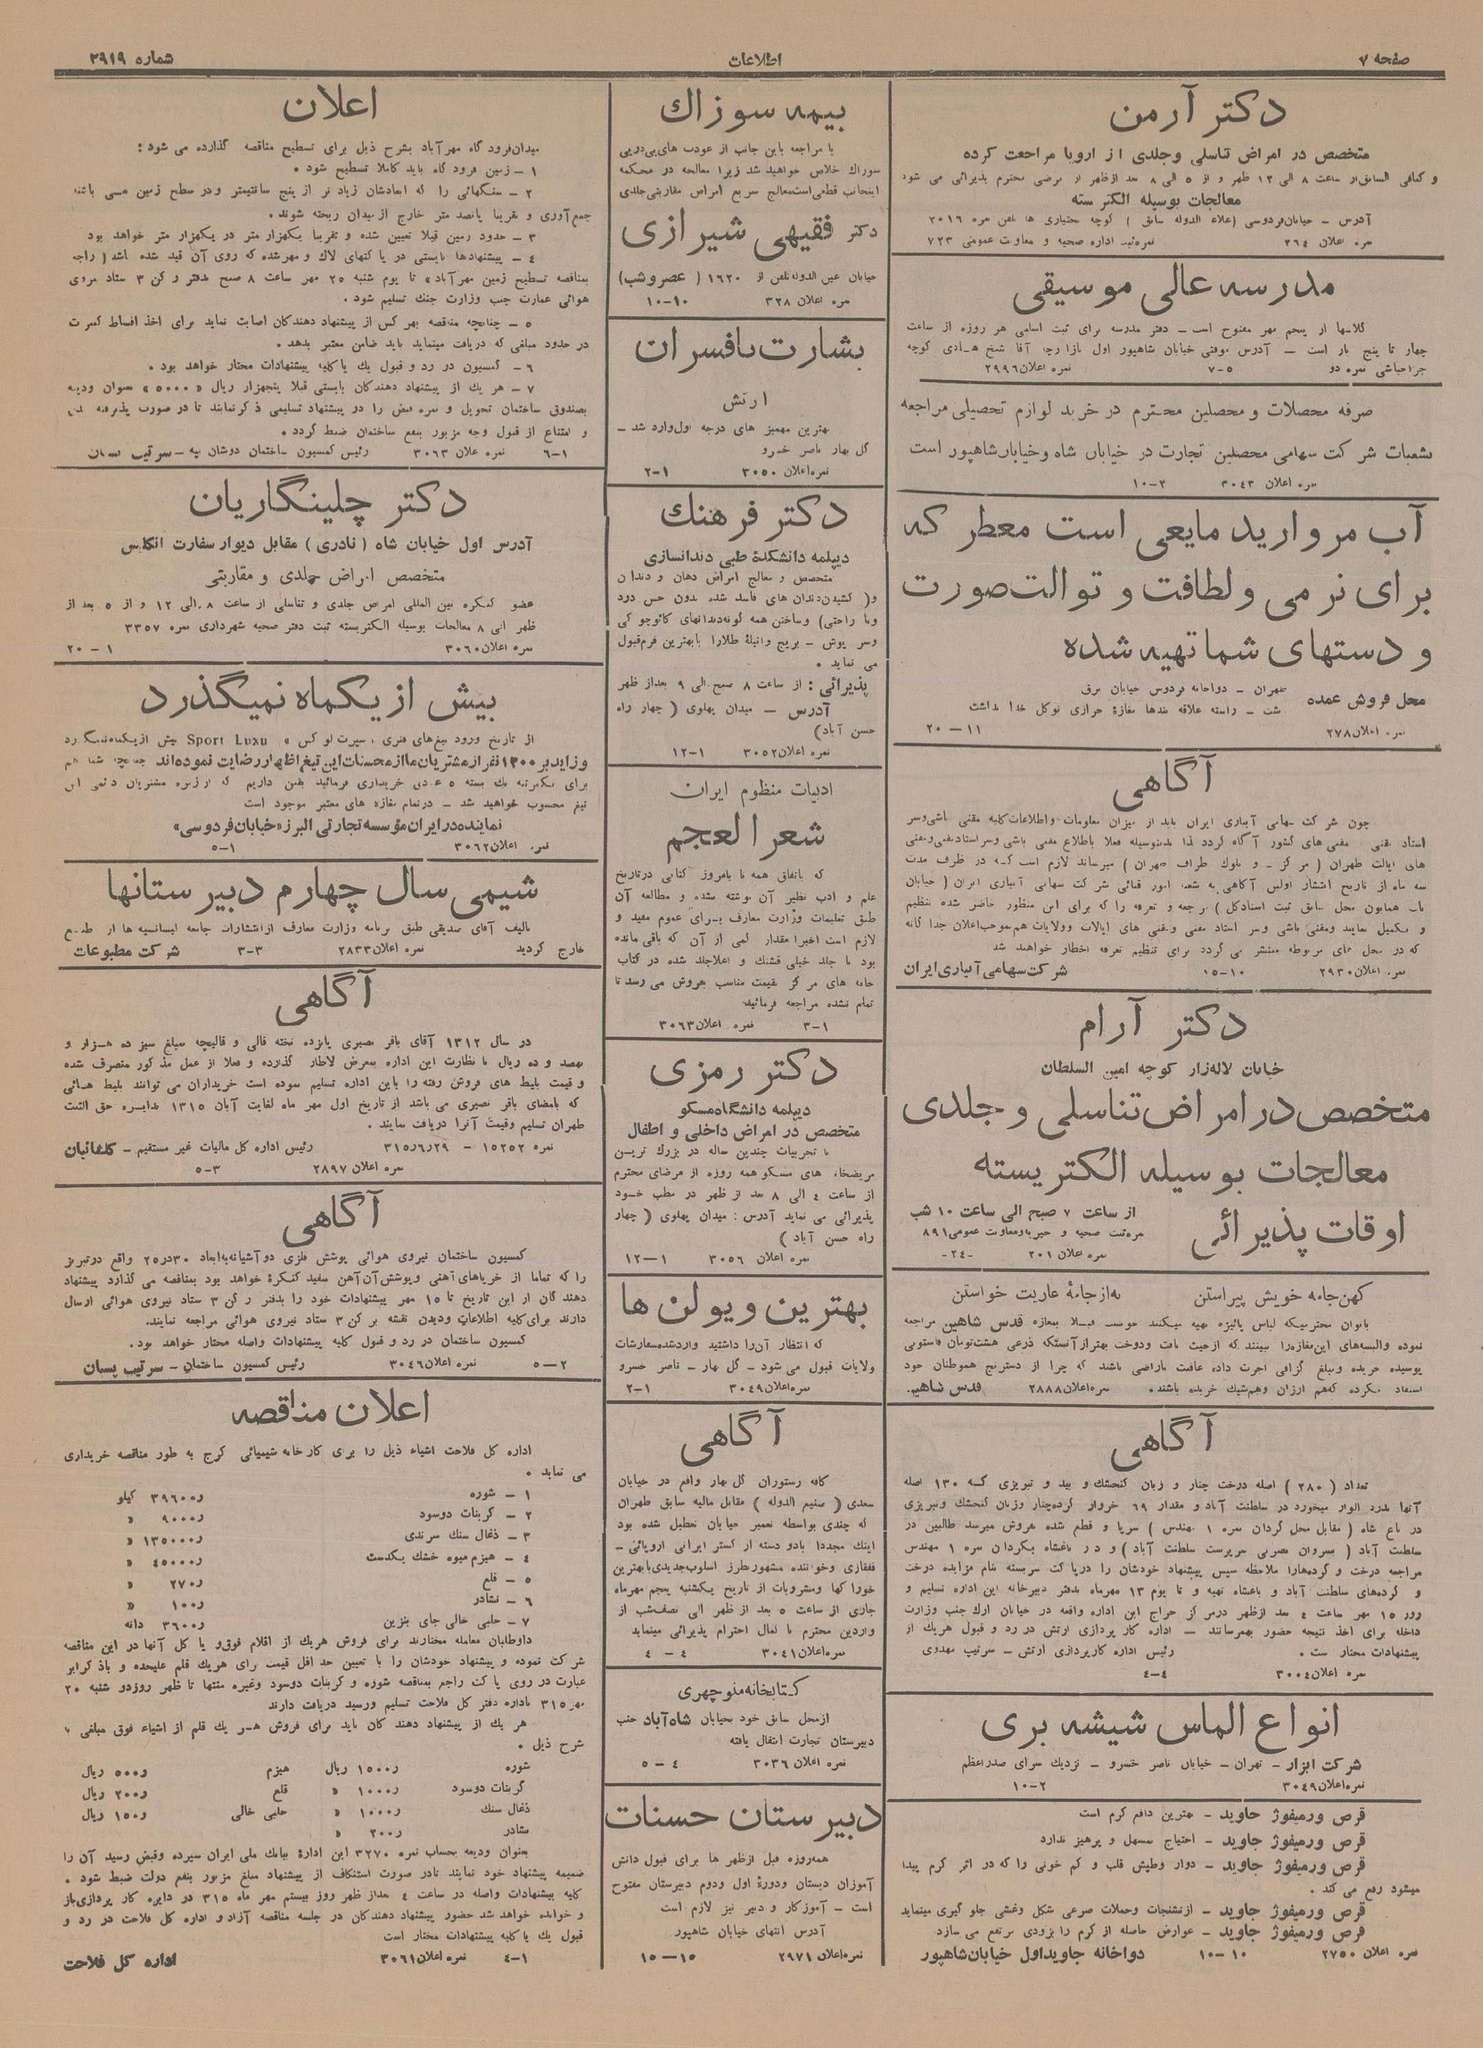 صفحه ۷
اطلاعات
شماره ۲۹۱۹
دکتر آرمن
متخصص در امراض تناسلی وجلدی از اروپا مراجعت کرده
و کمافی السابق از ساعت ۸ الی ۱۲ ظهر و از ۵ الی ۸ بعد ازظهر از مرضی محترم پذیرائی می شود
معالجات بوسیله الکتر سته
آدرس - خیابان فردوسی (علاء الدوله سابق) کوچه بختیاری ها تلفن نمره ۲۰۱۶
نمره اعلان ۲۶۴ نمره ثبت اداره صحیه و معاونت عمومی ۷۲۳
مدرسه عالی موسیقی
کلاسها از پنجم مهر مفتوح است - دفتر مدرسه برای ثبت اسامی هر روزه از ساعت
چهار تا پنج باز است - آدرس موقتی خیابان شاهپور اول بازارچه آقا شیخ هادی کوچه
جراحباشی نمره دو ۵-۷ نمره اعلان ۲۹۹۶
صرفه محصلات و محصلین محترم در خرید لوازم تحصیلی مراجعه
بشعبات شرکت سهامی محصلین تجارت در خیابان شاه وخیابان شاهپور است
نمره اعلان ۳۰۴۳ ۲-۱۰
آب مروارید مایعی است معطر که
برای نرمی ولطافت و توالت صورت
و دستهای شما تهیه شده
محل فروش عمده
طهران - دواخانه فردوسی خیابان برق
رشت - راسته علاقه بندها مغازهٔ خرازی توکل خدا
نمره اعلان ۲۷۸ ۱۱-۲۰
آگاهی
چون شرکت سهامی آبیاری ایران باید از میزان معلومات واطلاعات کلیه مقنی باشی وسر
استاد مقنی و مقنی های کشور آگاه گردد لذا بدینوسیله فعلا باطلاع مقنی باشی وسر استاد مقنی ومقنی
های ایالت طهران (مرکز - و بلوک اطراف طهران) میرساند لازم است که در ظرف مدت
سه ماه از تاریخ انتشار اولین آگاهی به شعبه امور قنائی شرکت سهامی آبیاری ایران (خیابان
باب همایون محل سابق ثبت اسنادکل) مراجعه و تعرفه را که برای این منظور حاضر شده تنظیم
و تکمیل نمایند ومقنی باشی وسر استاد مقنی ومقنی های ایالات و ولایات هم بموجب اعلان جداگانه
که در محل های مربوطه منتشر می گردد برای تنظیم تعرفه اخطار خواهند شد
نمره اعلان ۲۹۳۰ ۱۰-۱۵ شرکت سهامی آبیاری ایران
دکتر آرام
خیابان لاله زار کوچه امین السلطان
متخصص در امراض تناسلی و جلدی
معالجات بوسیله الکتریسته
اوقات پذیرائی
از ساعت ۷ صبح الی ساعت ۱۰ شب
نمره ثبت صحیه و خیریه ومعاونت عمومی ۸۹۱
نمره اعلان ۲۰۱ -۲۴-
کهن جامه خویش پیراستن به از جامهٔ عاریت خواستن
بانوان محترمیکه لباس پائیزه تهیه میکنند خوبست قبلا بمغازه قدس شاهین مراجعه
نموده والبسه های این مغازه را ببینند که از حیث بافت ودوخت بهتر از آنستکه ذرعی هشت تومان فاستونی
پوسیده خریده ومبلغ گزافی اجرت داده عاقبت ناراضی باشند که چرا از دسترنج هموطنان خود
استفاده نکرده که هم ارزان وهم شیک خریده باشند. نمره اعلان ۲۸۸۸ قدس شاهین
آگاهی
تعداد (۲۸۰) اصله درخت چنار و زبان گنجشک و بید و تبریزی که ۱۳۰ اصله
آنها بدرد الوار میخورد در سلطنت آباد و مقدار ۶۹ خروار کرده چنار وزبان گنجشک وتبریزی
در باغ شاه (مقابل محل گردان نمره ۱ مهندس) سرپا و قطع شده بفروش میرسد طالبین در
سلطنت آباد (بسروان نصرتی سرپرست سلطنت آباد) و در باغشاه بگردان نمره ۱ مهندس
مراجعه درخت و کرده‌هارا ملاحظه سپس پیشنهاد خودشان را درپاکت سربسته بنام مزایده درخت
و کرده‌های سلطنت آباد و باغشاه تهیه و تا یوم ۱۳ مهرماه بدفتر دبیرخانه این اداره تسلیم و
روز ۱۵ مهر ساعت ۴ بعد ازظهر درمرکز حراج این اداره واقعه در خیابان ارک جنب وزارت
داخله برای اخذ نتیجه حضور بهمرسانند - اداره کار پردازی ارتش در رد و قبول هریک از
پیشنهادات مختار است. رئیس اداره کارپردازی ارتش - سرتیپ مهدوی
نمره اعلان ۳۰۰۴ ۴-۴
انواع الماس شیشه بری
شرکت ابزار - تهران - خیابان ناصر خسرو - نزدیک سرای صدراعظم
نمره اعلان ۳۰۴۹ ۲-۱۰
قرص ورمیفوژ جاوید - بهترین دافع کرم است
قرص ورمیفوژ جاوید - احتیاج بمسهل و پرهیز ندارد
قرص ورمیفوژ جاوید - دوار وطپش قلب و کم خونی را که در اثر کرم پیدا
میشود رفع می کند.
قرص ورمیفوژ جاوید - ازتشنجات وحملات صرعی شکل وغشی جلو گیری مینماید
قرص ورمیفوژ جاوید - عوارض حاصله از کرم را بزودی مرتفع می سازد
نمره اعلان ۲۷۵۰ ۱۰-۱۰ دواخانه جاوید اول خیابان شاهپور
بیمه سوزاک
با مراجعه باین جانب از عودت های پی درپی
سوزاک خلاص خواهید شد زیرا معالجه در محکمه
اینجانب قطعی است معالج سریع امراض مقاربتی جلدی
دکتر فقیهی شیرازی
خیابان عین الدوله تلفن از ۱۶۲۰ (عصر و شب)
نمره اعلان ۳۲۸ ۱۰-۱۰
بشارت بافسران
ارتش
بهترین مهمیز های درجه اول وارد شد -
گل بهار ناصر خسرو
نمره اعلان ۳۰۵۰ ۱-۲
دکتر فرهنک
دیپلمه دانشکدهٔ طبی دندانسازی
متخصص و معالج امراض دهان و دندان
و( کشیدن دندان های فاسد شده بدون حس درد
وبا راحتی) وساختن همه گونه دندانهای کائوچوکی
وسر پوش - بریج وانیلهٔ طلارا بابهترین فرم قبول
می نماید.
پذیرائی: از ساعت ۸ صبح الی ۹ بعد از ظهر
آدرس - میدان پهلوی (چهار راه
حسن آباد)
نمره اعلان ۳۰۵۲ ۱-۱۲
ادبیات منظوم ایران
شعر العجم
که باتفاق همه تا بامروز کتابی درتاریخ
علم و ادب نظیر آن نوشته نشده و مطالعه آن
طبق تعلیمات وزارت معارف برای عموم مفید و
لازم است اخیرا مقدار کمی از آن که باقی مانده
بود با جلد خیلی قشنگ و اعلاجلد شده در کتاب
خانه های مرکز بقیمت مناسب بفروش می رسد تا
تمام نشده مراجعه فرمائید
نمره اعلان ۳۰۶۳ ۱-۳
دکتر رمزی
دیپلمه دانشگاه مسکو
متخصص در امراض داخلی و اطفال
با تجربیات چندین ساله در بزرگ ترین
مریضخانه های مسکو همه روزه از مرضای محترم
از ساعت ۴ الی ۸ بعد از ظهر در مطب خود
پذیرائی می نماید آدرس: میدان پهلوی (چهار
راه حسن آباد)
نمره اعلان ۳۰۵۶ ۱-۱۲
بهترین ویولن ها
که انتظار آن را داشتید وارد شد سفارشات
ولایات قبول می شود - گل بهار - ناصر خسرو
نمره اعلان ۳۰۴۹ ۱-۲
آگاهی
کافه رستوران گل بهار واقع در خیابان
سعدی (صنیع الدوله) مقابل مالیه سابق طهران
که چندی بواسطه تعمیر خیابان تعطیل شده بود
اینک مجددا بادو دسته ارکستر ایرانی اروپائی -
قفقازی وخواننده مشهور بطرز اسلوب جدیدی بابهترین
خوراکها ومشروبات از تاریخ یکشنبه پنجم مهرماه
جاری از ساعت ۵ بعد از ظهر الی نصف شب از
واردین محترم با کمال احترام پذیرائی مینماید
نمره اعلان ۳۰۴۱ ۴-۴
کتابخانه منوچهری
از محل سابق خود بخیابان شاه آباد جنب
دبیرستان تجارت انتقال یافته
نمره اعلان ۳۰۳۶ ۴-۵
دبیرستان حسنات
همه روزه قبل ازظهر ها برای قبول دانش
آموزان دبستان ودورهٔ اول ودوم دبیرستان مفتوح
است - آموزگار و دبیر نیز لازم است
آدرس انتهای خیابان شاهپور
نمره اعلان ۲۹۷۱ ۱۵-۱۵
اعلان
میدان فرود گاه مهرآباد بشرح ذیل برای تسطیح مناقصه گذارده می شود:
۱ - زمین فرود گاه باید کاملا تسطیح شود.
۲ - سنگهائی را که ابعادشان زیاد تر از پنج سانتیمتر ودر سطح زمین می باشد
جمع آوری و تقریبا پانصد متر خارج از میدان ریخته شوند.
۳ - حدود زمین قبلا تعیین شده و تقریبا یکهزار متر در یکهزار متر خواهد بود
۴ - پیشنهادها بایستی در پاکتهای لاک و مهر شده که روی آن قید شده باشد (راجع
بمناقصه تسطیح زمین مهرآباد) تا یوم شنبه ۲۵ مهر ساعت ۸ صبح بدفتر رکن ۳ ستاد نیروی
هوائی عمارت جنب وزارت جنگ تسلیم شود.
۵ - چنانچه مناقصه بهر کس از پیشنهاد دهندگان اصابت نماید برای اخذ اقساط کنترات
در حدود مبلغی که دریافت مینماید باید ضامن معتبر بدهد.
۶ - کمسیون در رد و قبول یک یا کلیه پیشنهادات مختار خواهد بود.
۷ - هر یک از پیشنهاد دهندگان بایستی قبلا پنجهزار ریال «۵۰۰۰» بعنوان ودیعه
بصندوق ساختمان تحویل و نمره قبض را در پیشنهاد تسلیمی ذکر نمایند تا در صورت پذیرفته شدن
و امتناع از قبول وجه مزبور بنفع ساختمان ضبط گردد.
۱-۶ نمره اعلان ۳۰۶۳ رئیس کمسیون ساختمان دوشان تپه - سرتیپ پسیان
دکتر چلینگاریان
آدرس اول خیابان شاه (نادری) مقابل دیوار سفارت انگلیس
متخصص امراض جلدی و مقاربتی
عضو کنگره بین المللی امراض جلدی و تناسلی از ساعت ۸ الی ۱۲ و از ۵ بعد از
ظهر الی ۸ معالجات بوسیله الکتریسته ثبت دفتر صحیه شهرداری نمره ۳۳۵۷
نمره اعلان ۳۰۶۰ ۱-۲۰
بیش از یکماه نمیگذرد
از تاریخ ورود تیغ های فنری «سپرت لوکس» Sport Luxu بیش از یکماه نمیگذرد
وزاید بر ۱۳۰۰ نفر از مشتریان ما از محسنات این تیغ اظهار رضایت نموده اند چنانچه شما هم
برای یکمرتبه یک بسته ۵ عددی خریداری فرمائید یقین داریم که از زمره مشتریان دائمی این
تیغ محسوب خواهید شد - درتمام مغازه های معتبر موجود است
نماینده در ایران مؤسسه تجارتی البرز «خیابان فردوسی»
نمره اعلان ۳۰۶۲ ۱-۵
شیمی سال چهارم دبیرستانها
تالیف آقای صدیقی طبق برنامه وزارت معارف ازانتشارات جامعه لیسانسیه ها از طبع
خارج گردید نمره اعلان ۲۸۳۳ ۳-۳ شرکت مطبوعات
آگاهی
در سال ۱۳۱۲ آقای باقر نصیری پانزده تخته قالی و قالیچه بمبلغ سیزده هزار و
نهصد و ده ریال با نظارت این اداره بمعرض لاطار گذارده و فعلا از عمل مذکور منصرف شده
و قیمت بلیط های فروش رفته را باین اداره تسلیم نموده است خریداران می توانند بلیط هائی
که بامضای باقر نصیری می باشد از تاریخ اول مهر ماه لغایت آبان ۱۳۱۵ بدایره حق الثبت
طهران تسلیم وقیمت آنرا دریافت نمایند.
نمره ۱۵۲۵۲ - ۳۱۵٫۶٫۲۹ رئیس اداره کل مالیات غیر مستقیم - گلشائیان
نمره اعلان ۲۸۹۷ ۳-۵
آگاهی
کمسیون ساختمان نیروی هوائی پوشش فلزی دو آشیانه به ابعاد ۳۰ در ۲۵ واقع درتبریز
را که تماما از خرپاهای آهنی وپوشش آن آهن سفید کنگرهٔ خواهد بود بمناقصه می گذارد پیشنهاد
دهندگان از این تاریخ تا ۱۵ مهر پیشنهادات خود را بدفتر رکن ۳ ستاد نیروی هوائی ارسال
دارند برای کلیه اطلاعات ودیدن نقشه برکن ۳ ستاد نیروی هوائی مراجعه نمایند.
کمسیون ساختمان در رد و قبول کلیه پیشنهادات واصله مختار خواهد بود.
۲-۵ نمره اعلان ۳۰۴۶ رئیس کمسیون ساختمان - سرتیپ پسیان
اعلان مناقصه
اداره کل فلاحت اشیاء ذیل را برای کارخانه شیمیائی کرج به طور مناقصه خریداری
می نماید.
۱ - شوره ۳۹۶۰۰ر کیلو
۲ - کربنات دوسود ۹۰۰۰ر «
۳ - ذغال سنگ سرندی ۱۳۵۰۰۰ر «
۴ - هیزم میوه خشک یکدست ۴۵۰۰۰ر «
۵ - قلع ۲۷۰ر «
۶ - نشادر ۱۰۰ر «
۷ - حلبی خالی جای بنزین ۳۶۰۰ر دانه
داوطلبان معامله مختارند برای فروش هریک از اقلام فوق و یا کل آنها در این مناقصه
شرکت نموده و پیشنهاد خودشان را با تعیین حد اقل قیمت برای هریک قلم علیحده و باذکر این
عبارت در روی پاکت راجع بمناقصه شوره و کربنات دوسود وغیره منتها تا ظهر روز دو شنبه ۲۰
مهر ۳۱۵ باداره دفتر کل فلاحت تسلیم ورسید دریافت دارند
هر یک از پیشنهاد دهندگان باید برای فروش هر یک قلم از اشیاء فوق مبلغی با
شرح ذیل.
شوره ۱۵۰۰ر ریال هیزم ۵۰۰ر ریال
کربنات دوسود ۱۰۰۰ر « قلع ۲۰۰ر ریال
ذغال سنک ۱۰۰۰ر « حلبی خالی ۱۵۰ر ریال
نشادر ۲۰۰ر «
بعنوان ودیعه بحساب نمره ۳۲۷۰ این ادارهٔ ببانک ملی ایران سپرده وقبض رسید آن را
ضمیمه پیشنهاد خود نمایند تادر صورت استنکاف از پیشنهاد مبلغ مزبور بنفع دولت ضبط شود.
کلیه پیشنهادات واصله در ساعت ۴ بعداز ظهر روز بیستم مهر ماه ۳۱۵ در دایره کار پردازی باز
و خوانده خواهد شد حضور پیشنهاد دهندگان در جلسه مناقصه آزاد و اداره کل فلاحت در رد و
قبول یک یا کلیه پیشنهادات مختار است
۱-۴ نمره اعلان ۳۰۶۱ اداره کل فلاحت